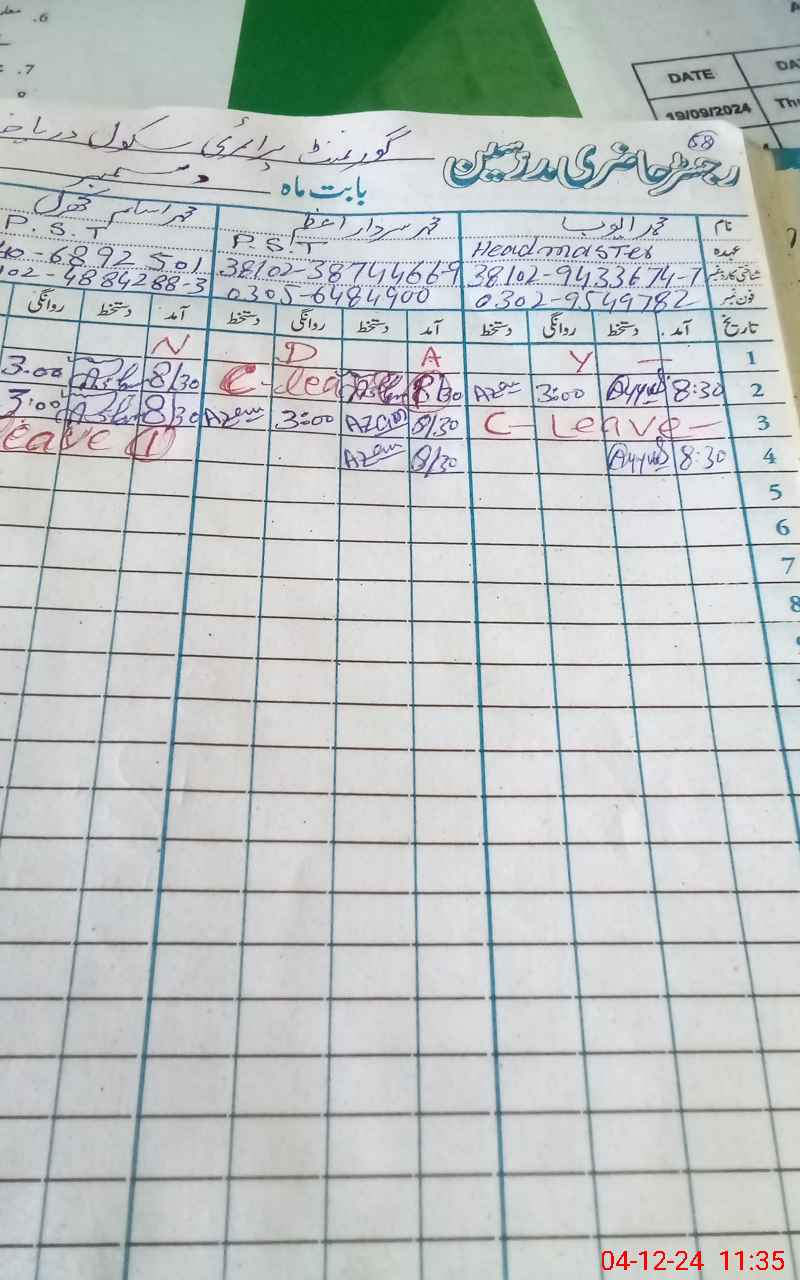 6.
7.
DATE
DA
19/09/2024
Thu
68
رجسٹر حاضری مدرسین
گورنمنٹ پرائمری سکول دریا
بابت ماہ دسمبر
نام محمد ایوب محمد سردار اعظم محمد اسلم
عہدہ Headmaster P.S.T P.S.T
شناختی کارڈ نمبر 38102-9433674-7 38102-3874466-9
فون نمبر 0302-9549782 0305-6484900
40-6892501
102-4884288-3
تاریخ آمد دستخط روانگی دستخط آمد دستخط روانگی دستخط آمد دستخط روانگی
1 — Y A D N
2 8:30 Ayyub 3:00 Azam 8/30 C-lea 8/30 Aslm 3:00
3 C- Leave- 8/30 Azam 3:00 Azam 8/30 Aslm 3:00
4 8:30 Ayyub 8/30 Azam eave 1
5
6
7
8
04-12-24 11:35